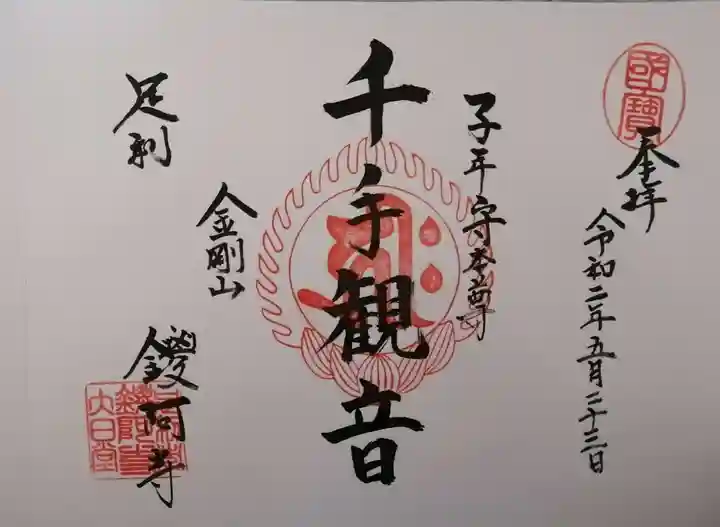 國寶
奉拝
令和二年五月二十三日
子年守本尊
千手観音
金剛山
足利
鑁阿寺
大日堂